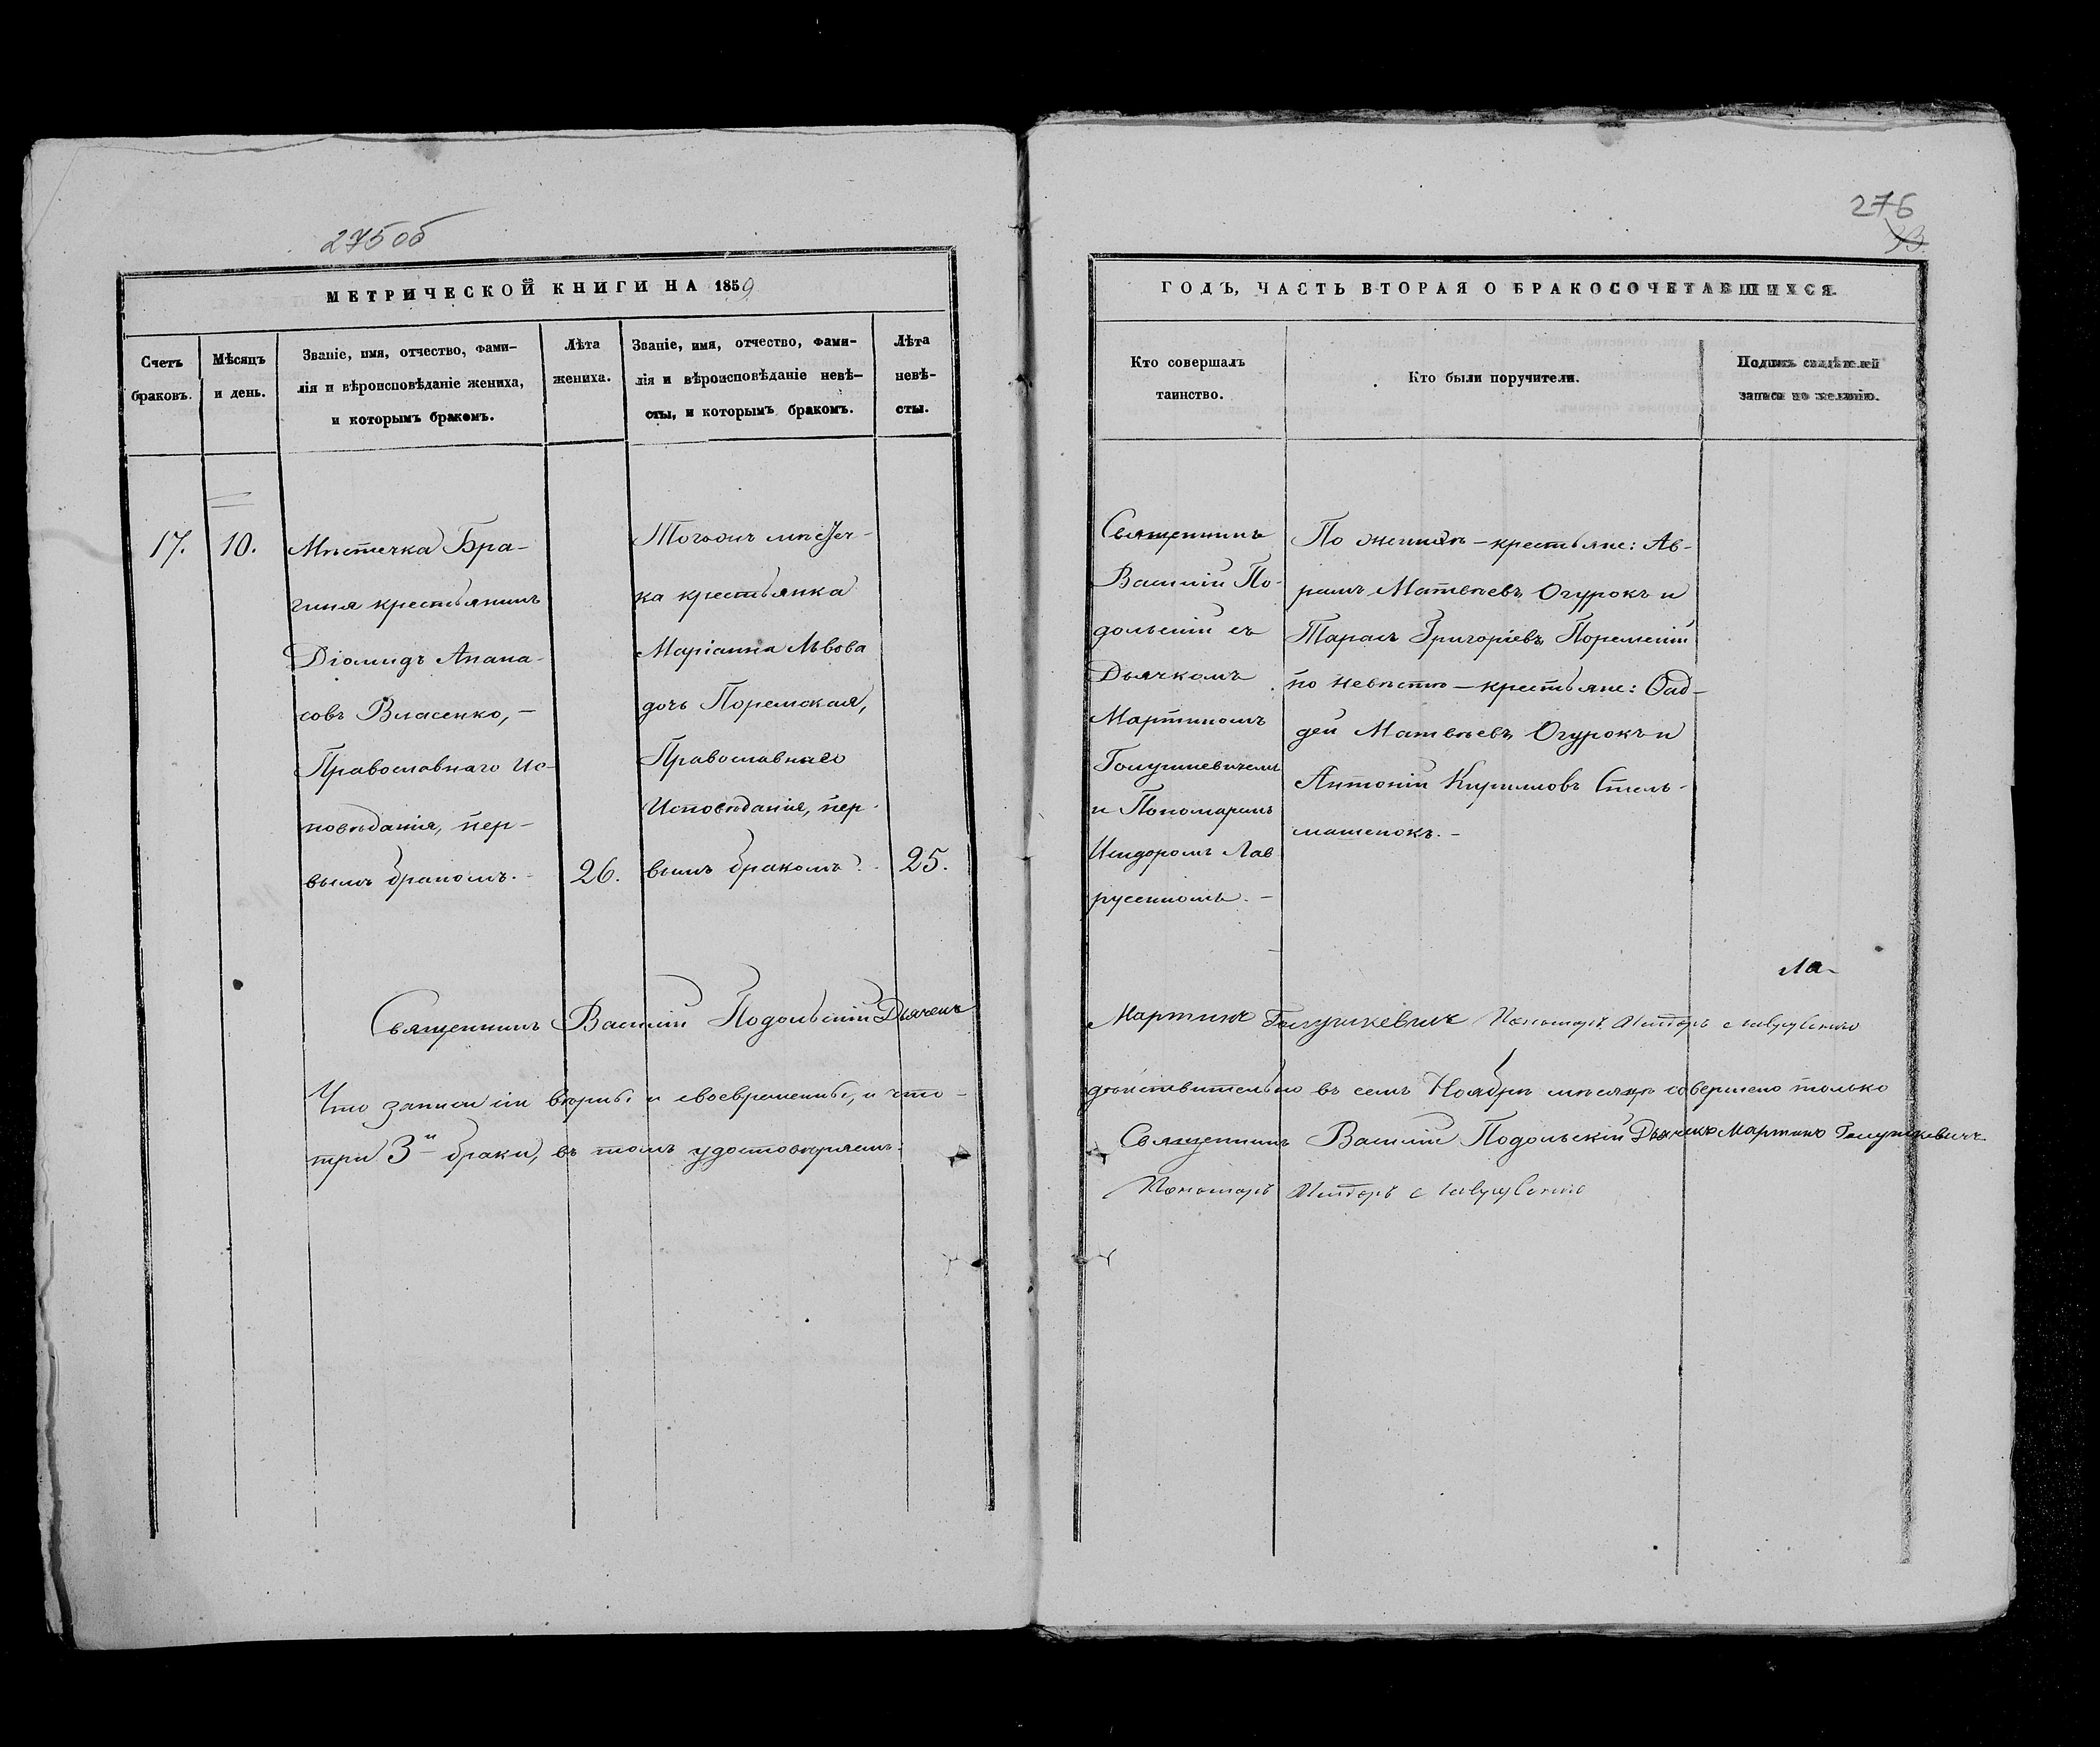 275об
МЕТРИЧЕСКОЙ КНИГИ НА 1859
Счетъ браковъ.
Мѣсяцъ и день.
Званіе, имя, отчество, фами-
лія и вѣроисповѣданіе жениха,
и которымъ бракомъ.
Лѣта
жениха.
Званіе, имя, отчество, фами-
лія и вѣроисповѣданіе невѣ-
сты, и которымъ бракомъ.
Лѣта
невѣ-
сты.
17.
10.
Мѣстечка Бра-
гиня крестьянинъ
Діомидъ Апана-
совъ Власенко, –
Православнаго Ис-
повѣданія, пер-
вымъ бракомъ. –
26.
Тогожъ мѣстеч-
ка крестьянка
Маріанна Львова
дочь Поремская,
Православнаго
Исповѣданія, пер-
вымъ бракомъ.
25.
Священникъ Василій Подольскій Дьячекъ
Что записи сіи вѣрны и своевременны, и что
три 3и браки, въ томъ удостовѣряемъ.
276
93.
ГОДЪ, ЧАСТЬ ВТОРАЯ О БРАКОСОЧЕТАВШИХСЯ.
Кто совершалъ
таинство.
Кто были поручители.
Подпись свидѣтелей
записи по желанію.
Священникъ
Василій По-
дольскій съ
Дьячкомъ
Мартиномъ
Голушкевичемъ
и Пономаремъ
Исидоромъ Лав
русенкомъ. –
По женихѣ – крестьяне: Ав-
рамъ Матвѣевъ Огурокъ и
Тарасъ Григоріевъ Поремскій
по невѣстѣ – крестьяне: Ѳад-
дей Матвѣевъ Огурокъ и
Антоній Кирилловъ Стель-
машенокъ. –
Ла-
Мартинъ Голушкевичъ Пономарь Исидоръ Лаврусенко
дѣйствительно въ семъ Ноябрѣ мѣсяцѣ совершено только
Священникъ Василій Подольскій Дьячекъ Мартинъ Голушкевичъ
Пономарь Исидоръ Лаврусенко